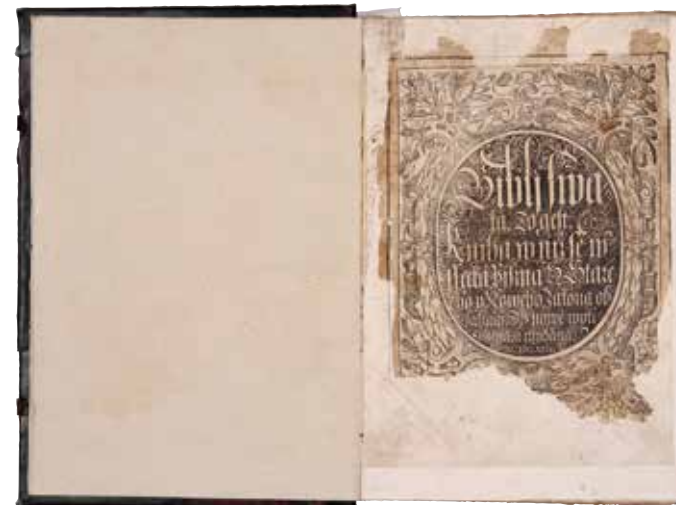 Biblj swa
tá. To gest
Kniha w njž se w
ssecka Pjsma S. Stare
ho y Nowého Zákona ob
sahugj W nowě wyti
a wydána